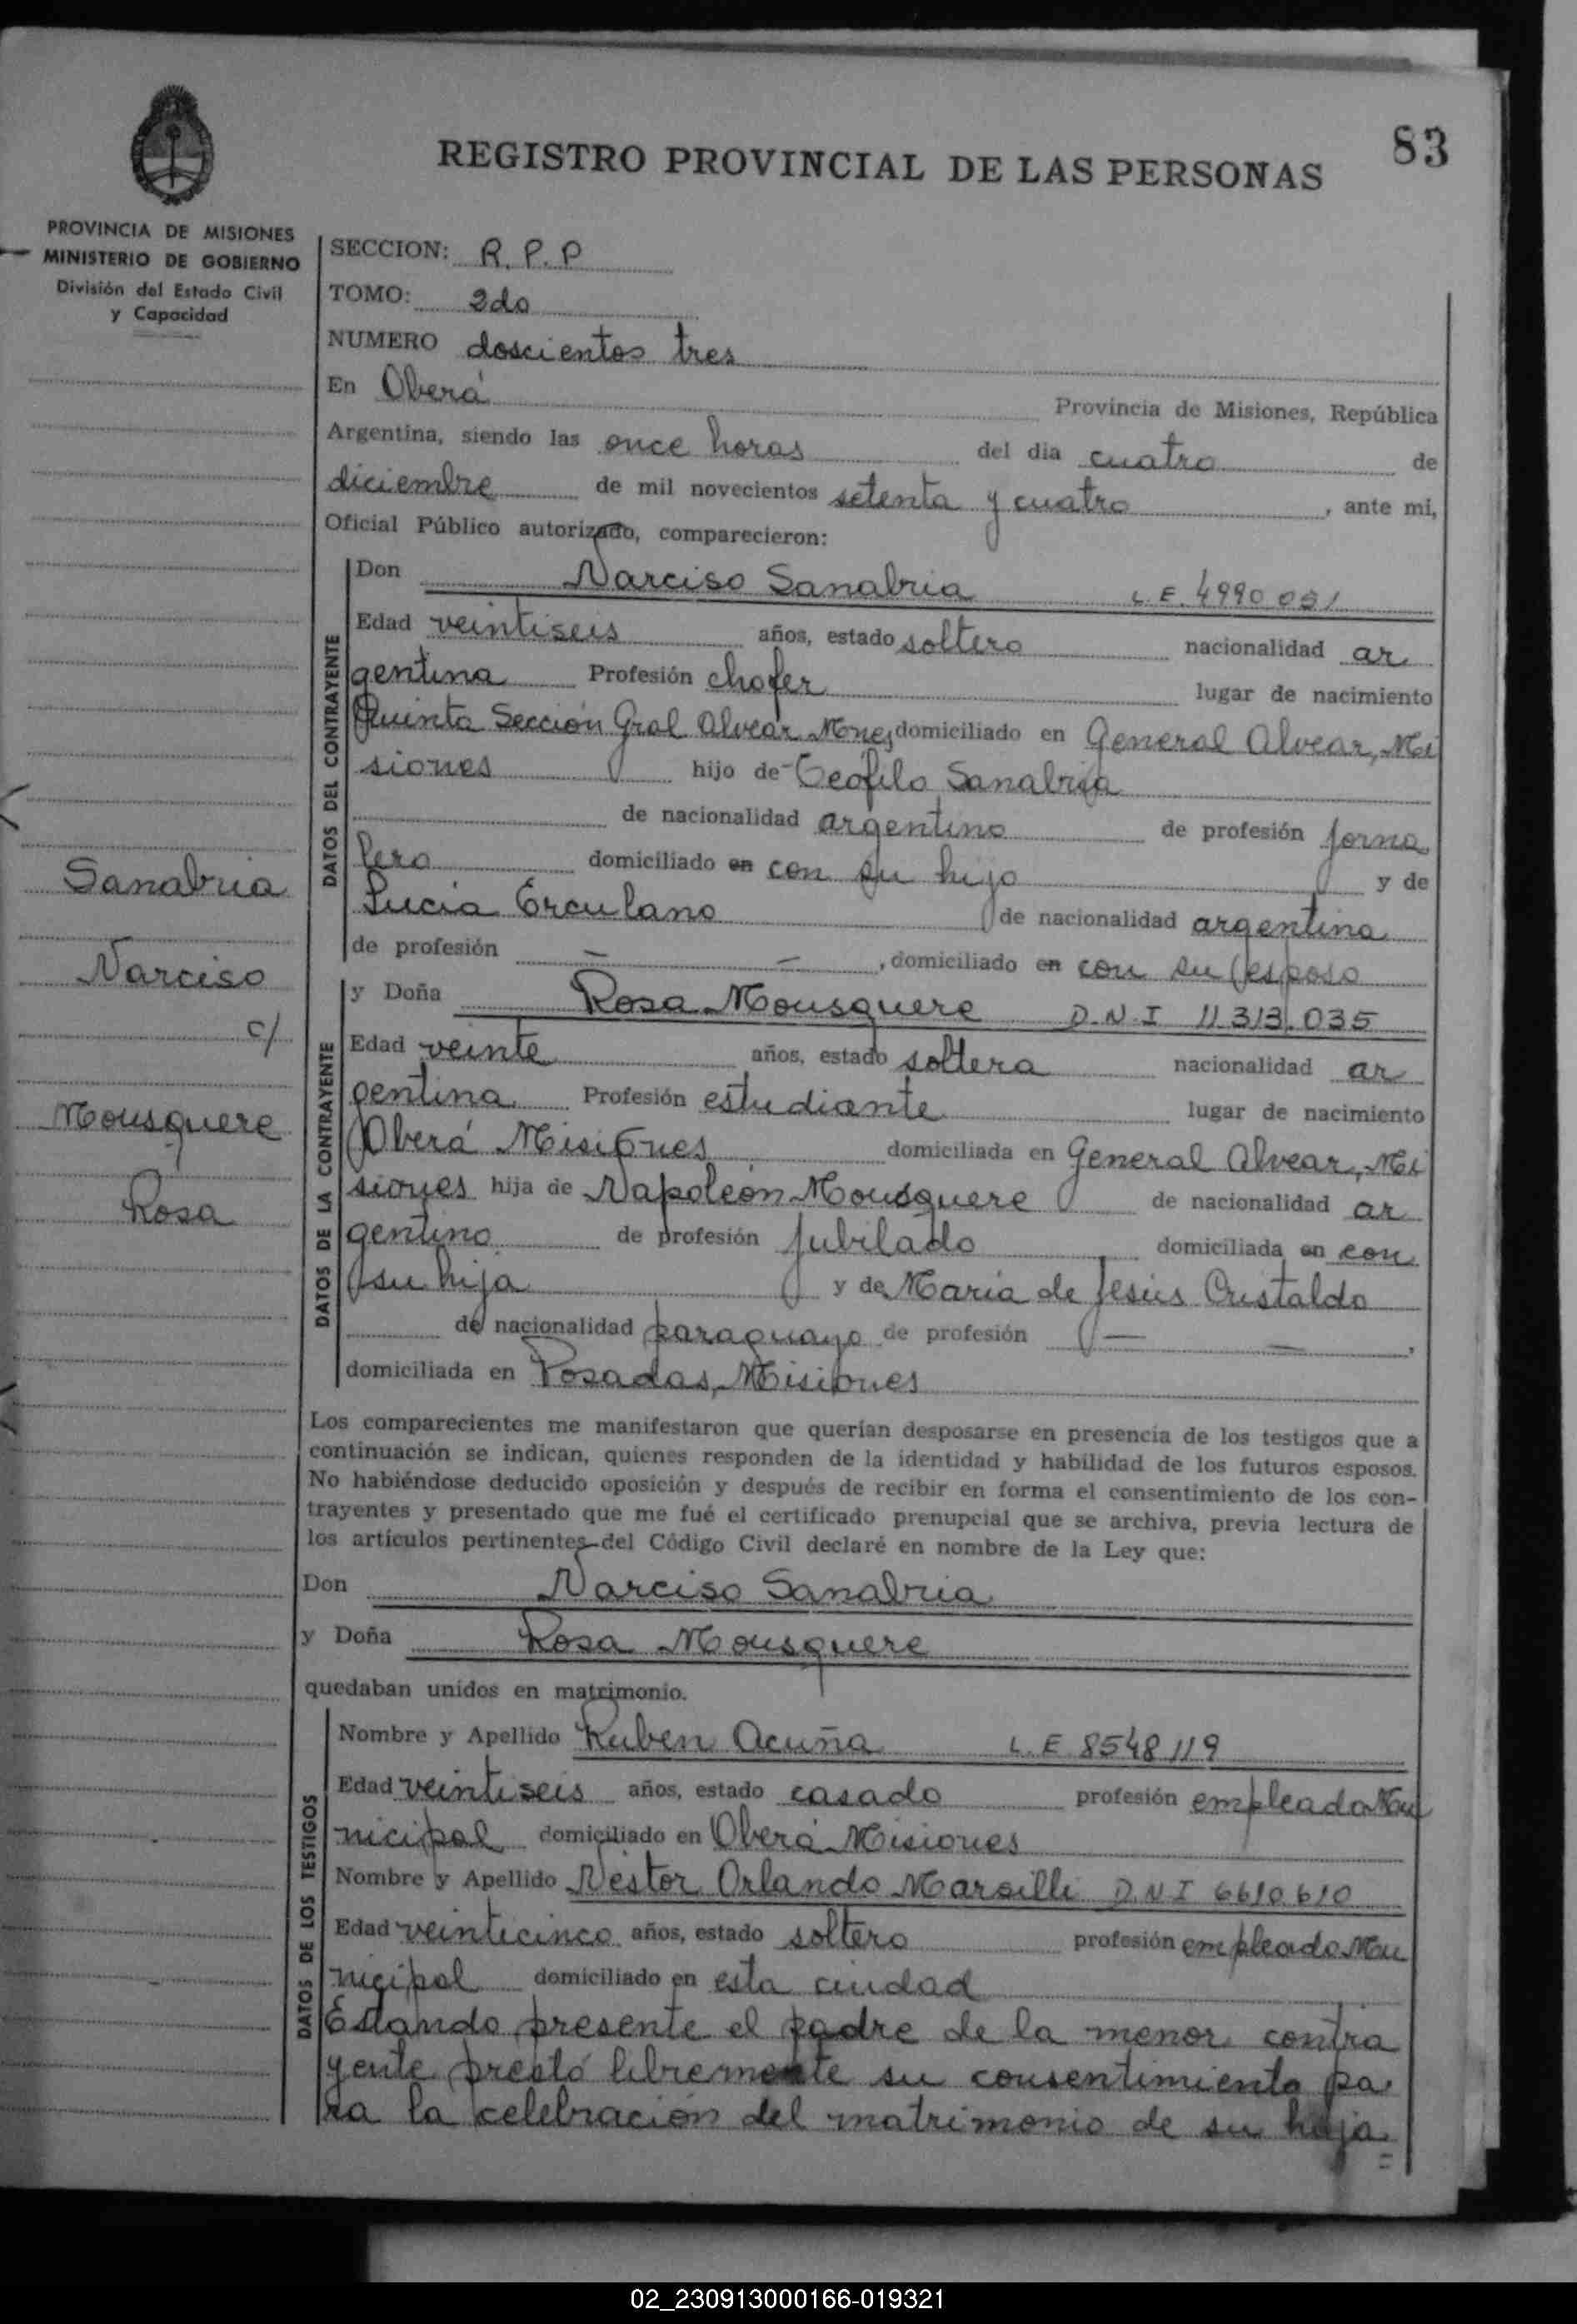 83
REGISTRO PROVINCIAL DE LAS PERSONAS
PROVINCIA DE MISIONES
MINISTERIO DE GOBIERNO
División del Estado Civil
y Capacidad
SECCION: R.P.P
TOMO: 2do
NUMERO doscientos tres
En Oberá Provincia de Misiones, República
Argentina, siendo las once horas del dia cuatro de
diciembre de mil novecientos setenta y cuatro, ante mi,
Oficial Público autorizado, comparecieron:
DATOS DEL CONTRAYENTE
Don Narciso Sanabria L.E. 4990051
Edad veintiseis años, estado soltero nacionalidad ar
gentina Profesión chofer lugar de nacimiento
Quinta Sección Gral Alvear Mnes domiciliado en General Alvear, Mi
siones hijo de Teófilo Sanabria
de nacionalidad argentino de profesión jorna
lero domiciliado en con su hijo y de
Lucia Erculano de nacionalidad argentina
de profesión — —, domiciliado en con su esposo
Sanabria
Narciso
c/
Mousquere
Rosa
DATOS DE LA CONTRAYENTE
y Doña Rosa Mousquere D.N.I 11.313.035
Edad veinte años, estado soltera nacionalidad ar
gentina Profesión estudiante lugar de nacimiento
Oberá Misiones domiciliada en General Alvear, Mi
siones hija de Napoleón Mousquere de nacionalidad ar
gentino de profesión jubilado domiciliada en con
su hija y de María de Jesús Cristaldo
de nacionalidad paraguaya de profesión — —,
domiciliada en Posadas, Misiones
Los comparecientes me manifestaron que querían desposarse en presencia de los testigos que a
continuación se indican, quienes responden de la identidad y habilidad de los futuros esposos.
No habiéndose deducido oposición y después de recibir en forma el consentimiento de los con-
trayentes y presentado que me fué el certificado prenupcial que se archiva, previa lectura de
los artículos pertinentes del Código Civil declaré en nombre de la Ley que:
Don Narciso Sanabria
y Doña Rosa Mousquere
quedaban unidos en matrimonio.
DATOS DE LOS TESTIGOS
Nombre y Apellido Ruben Acuña L.E 8548119
Edad veintiseis años, estado casado profesión empleado Mu
nicipal domiciliado en Oberá Misiones
Nombre y Apellido Néstor Orlando Marsilli D.N.I 6610.610
Edad veinticinco años, estado soltero profesión empleado Mu
nicipal domiciliado en esta ciudad
Estando presente el padre de la menor contra
yente prestó libremente su consentimiento pa
ra la celebración del matrimonio de su hija.=
02_230913000166-019321